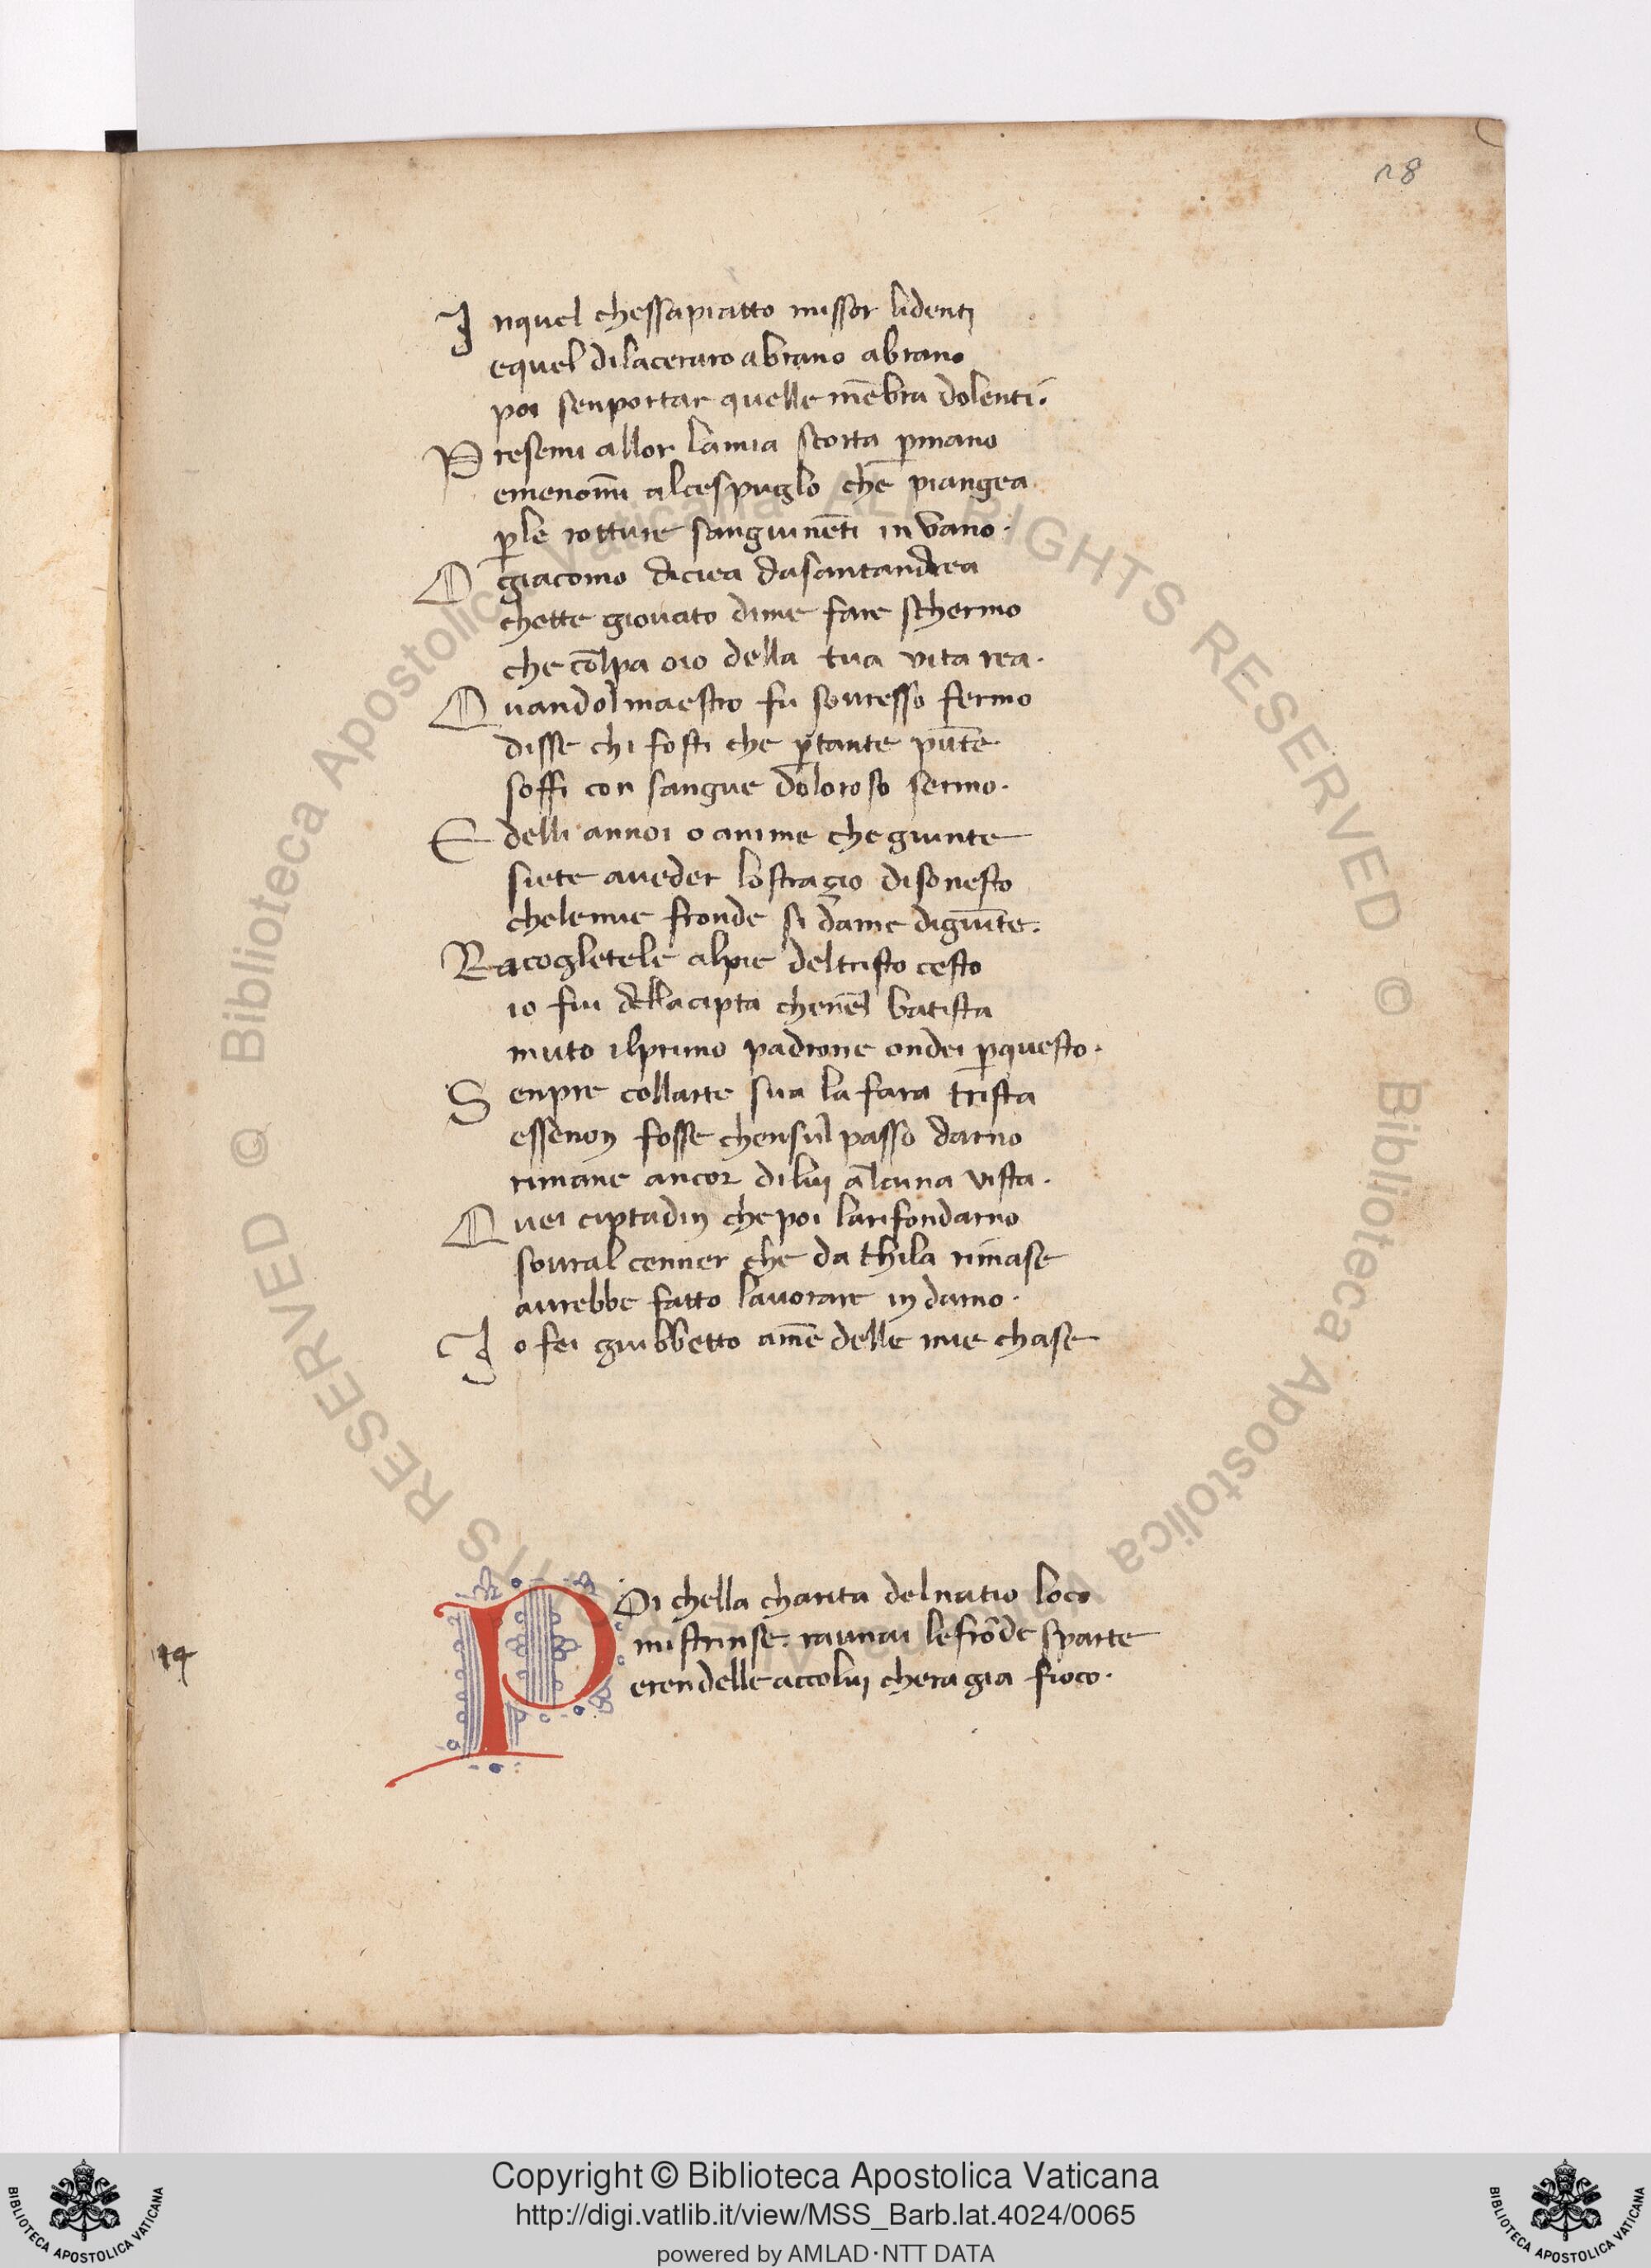 28
In quel chessapiatto missor lidenti
equel dilaceraro abrano abrano
poi senportar quelle mẽbra dolenti.
Presemi allor lamia scorta ꝑmano
emenomi alcespuglo che piangea
ꝑle rotture sanguinẽti in vano.
O giacomo dicea dasantandrea
chette giovato dime fare schermo
che colpa oio della tua vita rea.
Quandol maestro fu sovresso fermo
disse chi fosti che ꝑtante pũte
soffi con sangue doloroso sermo.
E delli annoi o anime che giunte
siete aveder lostragio disonesto
chelemie fronde si dame digiũte.
Racogletele alpie deltristo cesto
io fui dellacipta chenel batista
muto ilprimo padrone ondei ꝑquesto.
Senpre collarte sua la fara trista
essenon fosse chensul passo darno
rimane ancor dilui alcuna vista.
Quei ciptadin chepoi larifondarno
sovral cenner che da thila rimase
avrebbe fatto lavorare in darno.
Io fei giubbetto ame delle mie chase
14
POi chella charita delnatio loco
mistrinse. raunai lefrõde sparte
erendelle accolui chera gia fioco.
© Biblioteca Apostolica Vaticana ALL RIGHTS RESERVED © Biblioteca Apostolica Vaticana ALL RIGHTS RESERVED
BIBLIOTECA APOSTOLICA VATICANA
Copyright © Biblioteca Apostolica Vaticana
http://digi.vatlib.it/view/MSS_Barb.lat.4024/0065
powered by AMLAD·NTT DATA
BIBLIOTECA APOSTOLICA VATICANA